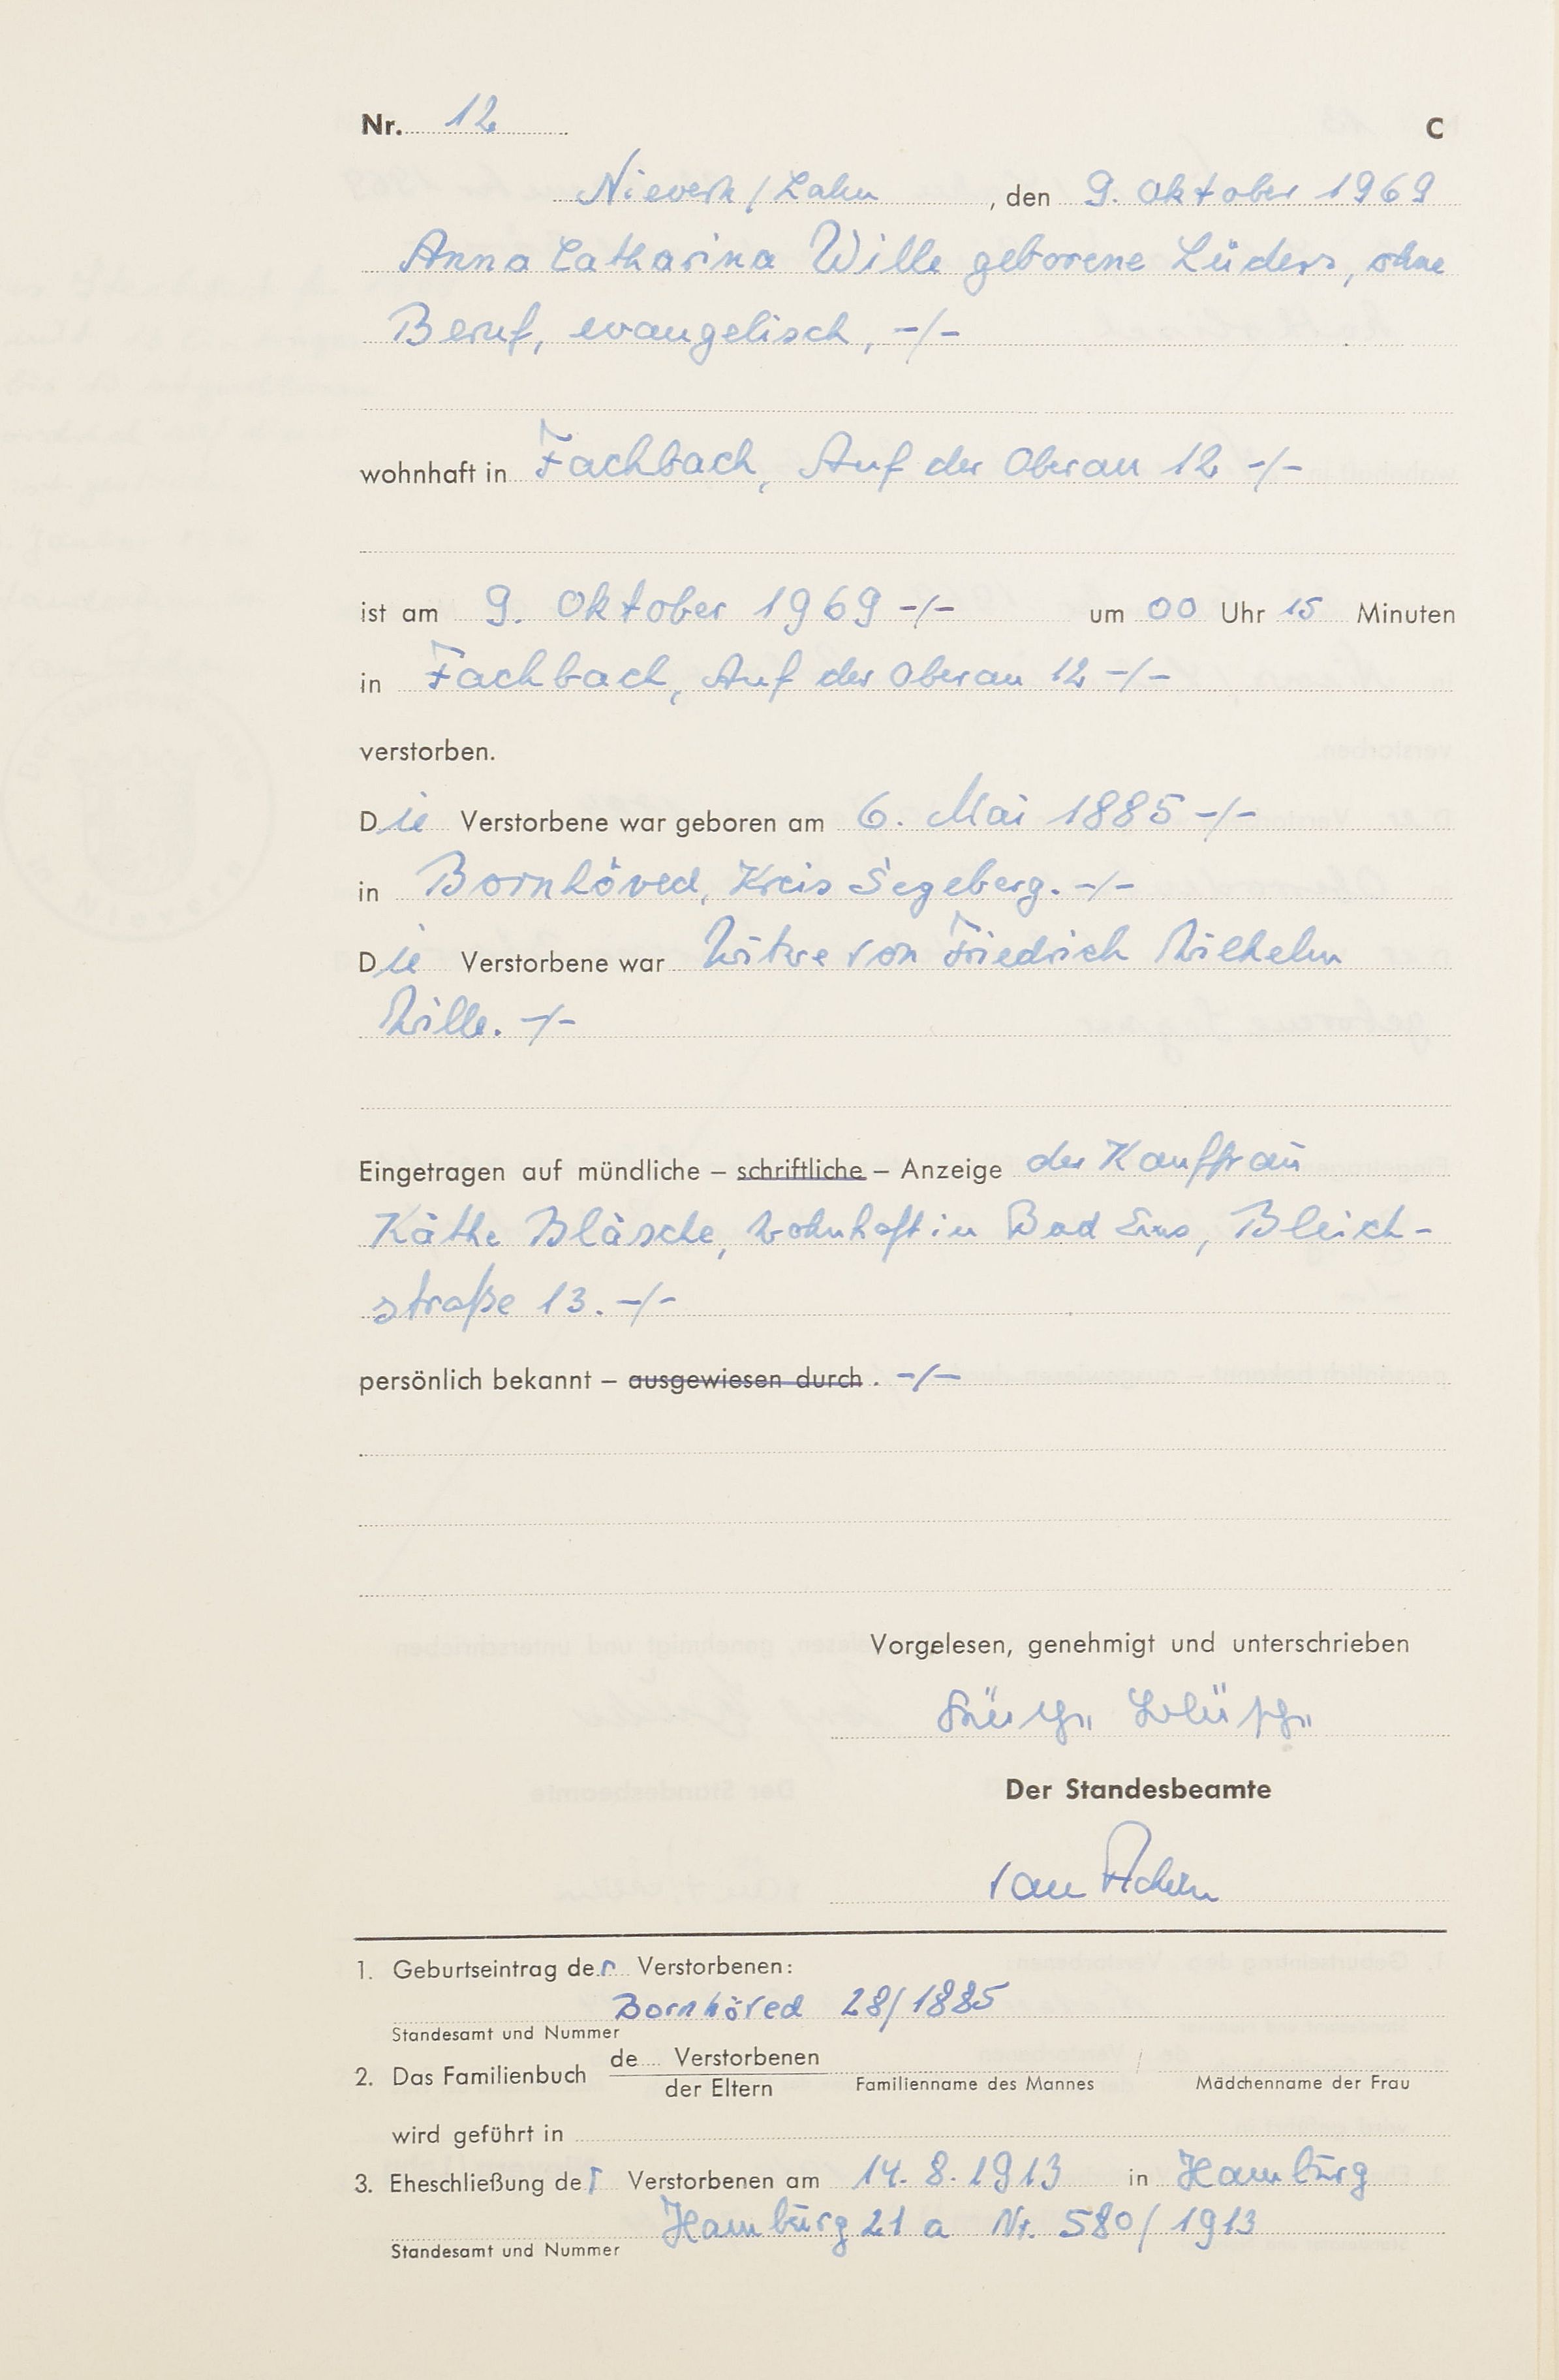 Nr. 12 C
Nievern / Lahn , den 9. Oktober 1969
Anna Catharina Wille geborene Lüders, ohne
Beruf, evangelisch, -/-
wohnhaft in Fachbach, Auf der Oberau 12 -/-
ist am 9. Oktober 1969 -/- um 00 Uhr 15 Minuten
in Fachbach, Auf der Oberau 12 -/-
verstorben.
Die Verstorbene war geboren am 6. Mai 1885 -/-
in Bornhöved, Kreis Segeberg. -/-
Die Verstorbene war Witwe von Friedrich Wilhelm
Wille. -/-
Eingetragen auf mündliche – schriftliche – Anzeige der Kauffrau
Käthe Bläsche, wohnhaft in Bad Ems, Bleich-
straße 13. -/-
persönlich bekannt – ausgewiesen durch . -/-
Vorgelesen, genehmigt und unterschrieben
Der Standesbeamte
1. Geburtseintrag der Verstorbenen:
Bornhöved 28/1885
Standesamt und Nummer
2. Das Familienbuch de Verstorbenen
der Eltern Familienname des Mannes / Mädchenname der Frau
wird geführt in
3. Eheschließung der Verstorbenen am 14. 8. 1913 in Hamburg
Hamburg 21 a Nr. 580/1913
Standesamt und Nummer